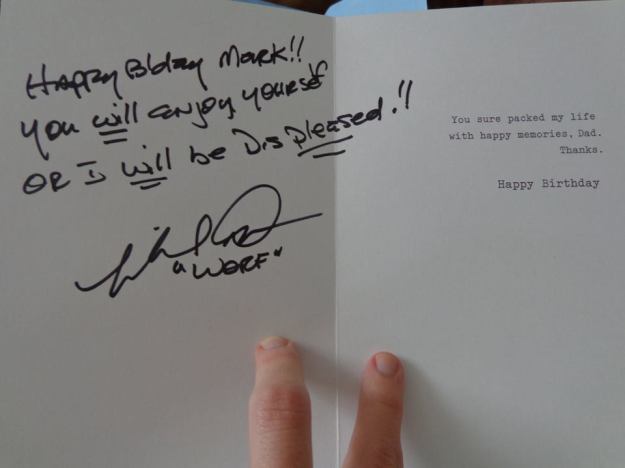 Happy B'day Mark!!
you will enjoy yourself
OR I will be Displeased!!
"WORF"
You sure packed my life
with happy memories, Dad.
Thanks.
Happy Birthday